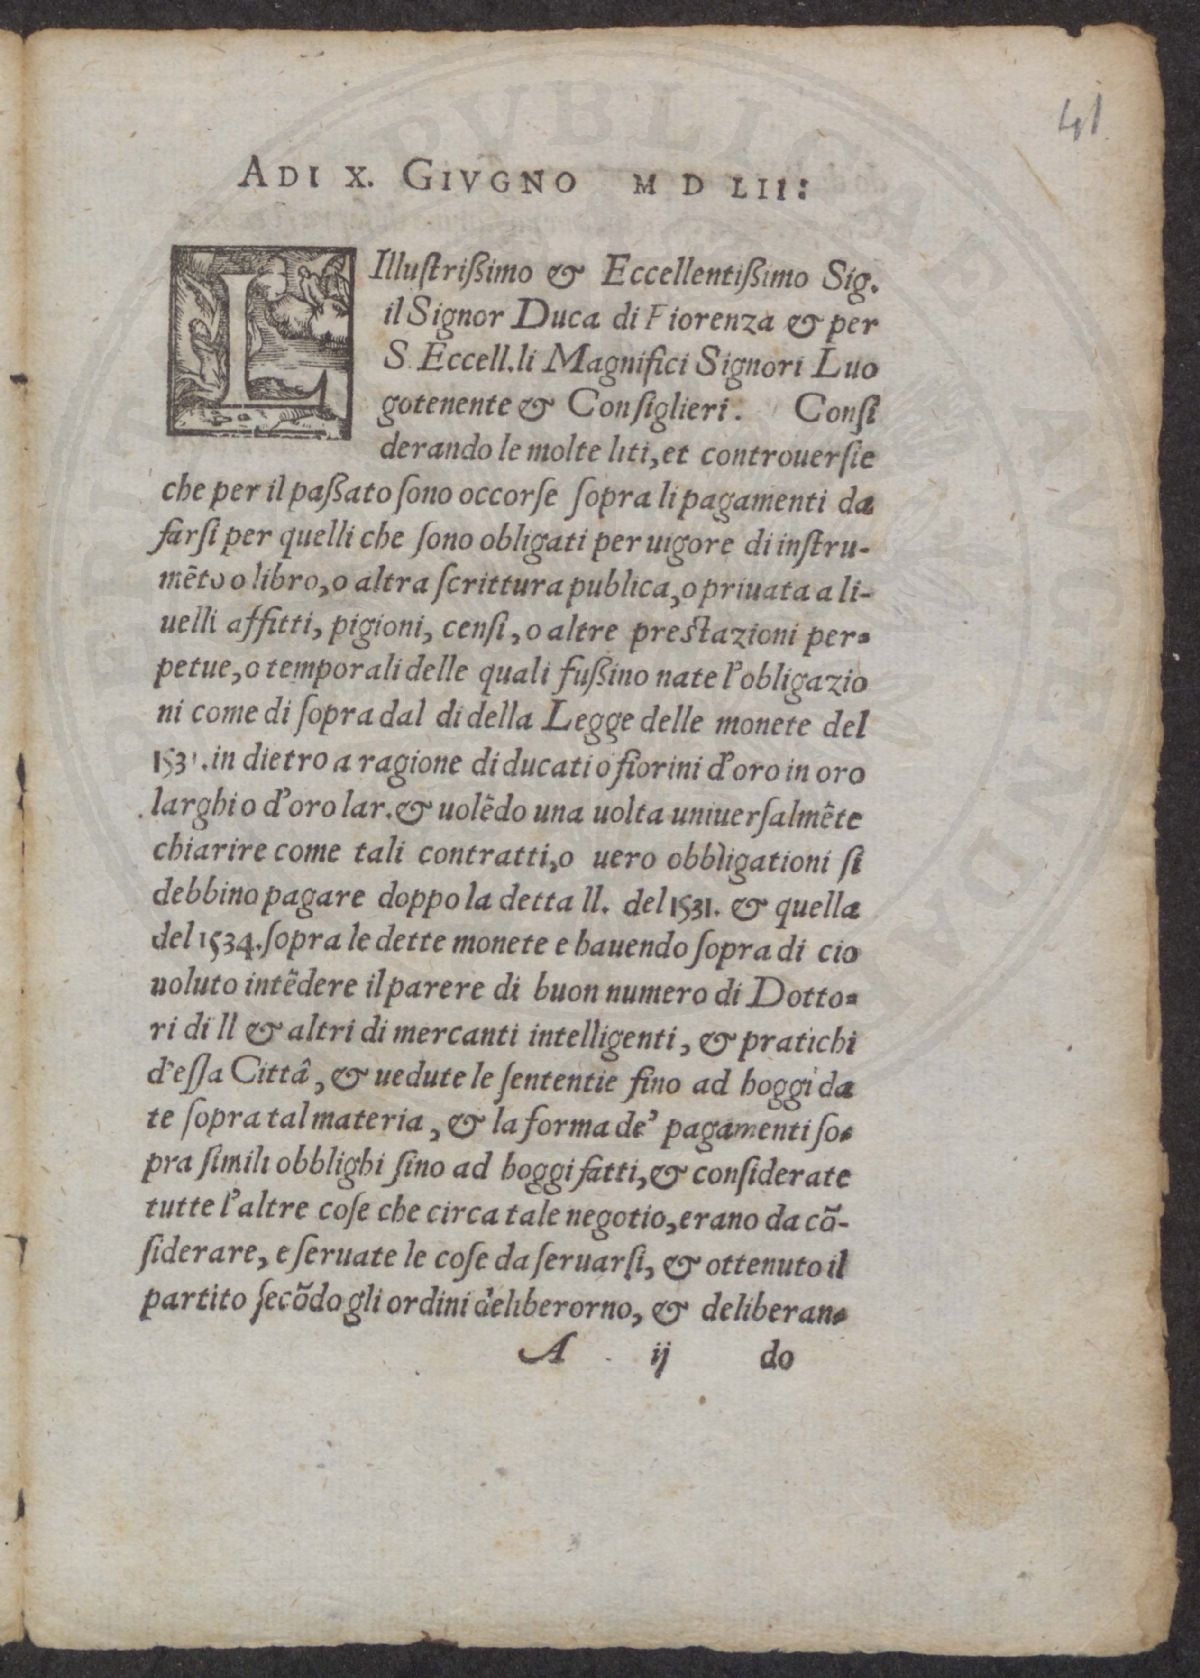 41
ADI X. GIVGNO M D LII:
LIllustrißimo & Eccellentißimo Sig.
il Signor Duca di Fiorenza & per
S. Eccell. li Magnifici Signori Luo
gotenente & Consiglieri. Consi
derando le molte liti, et controuersie
che per il paßato sono occorse sopra li pagamenti da
farsi per quelli che sono obligati per uigore di instru-
mēto o libro, o altra scrittura publica, o priuata a li-
uelli affitti, pigioni, censi, o altre prestazioni per-
petue, o temporali delle quali fußino nate l'obligazio
ni come di sopra dal di della Legge delle monete del
1531. in dietro a ragione di ducati o fiorini d'oro in oro
larghi o d'oro lar. & uolēdo una uolta uniuersalmēte
chiarire come tali contratti, o uero obbligationi si
debbino pagare doppo la detta ll. del 1531. & quella
del 1534. sopra le dette monete e hauendo sopra di cio
uoluto intēdere il parere di buon numero di Dotto-
ri di ll & altri di mercanti intelligenti, & pratichi
d'essa Cittâ, & uedute le sententie fino ad hoggi da
te sopra tal materia, & la forma de' pagamenti so-
pra simili obblighi sino ad hoggi fatti, & considerate
tutte l'altre cose che circa tale negotio, erano da cō-
siderare, e seruate le cose da seruarsi, & ottenuto il
partito secōdo gli ordini deliberorno, & deliberan-
A ij do